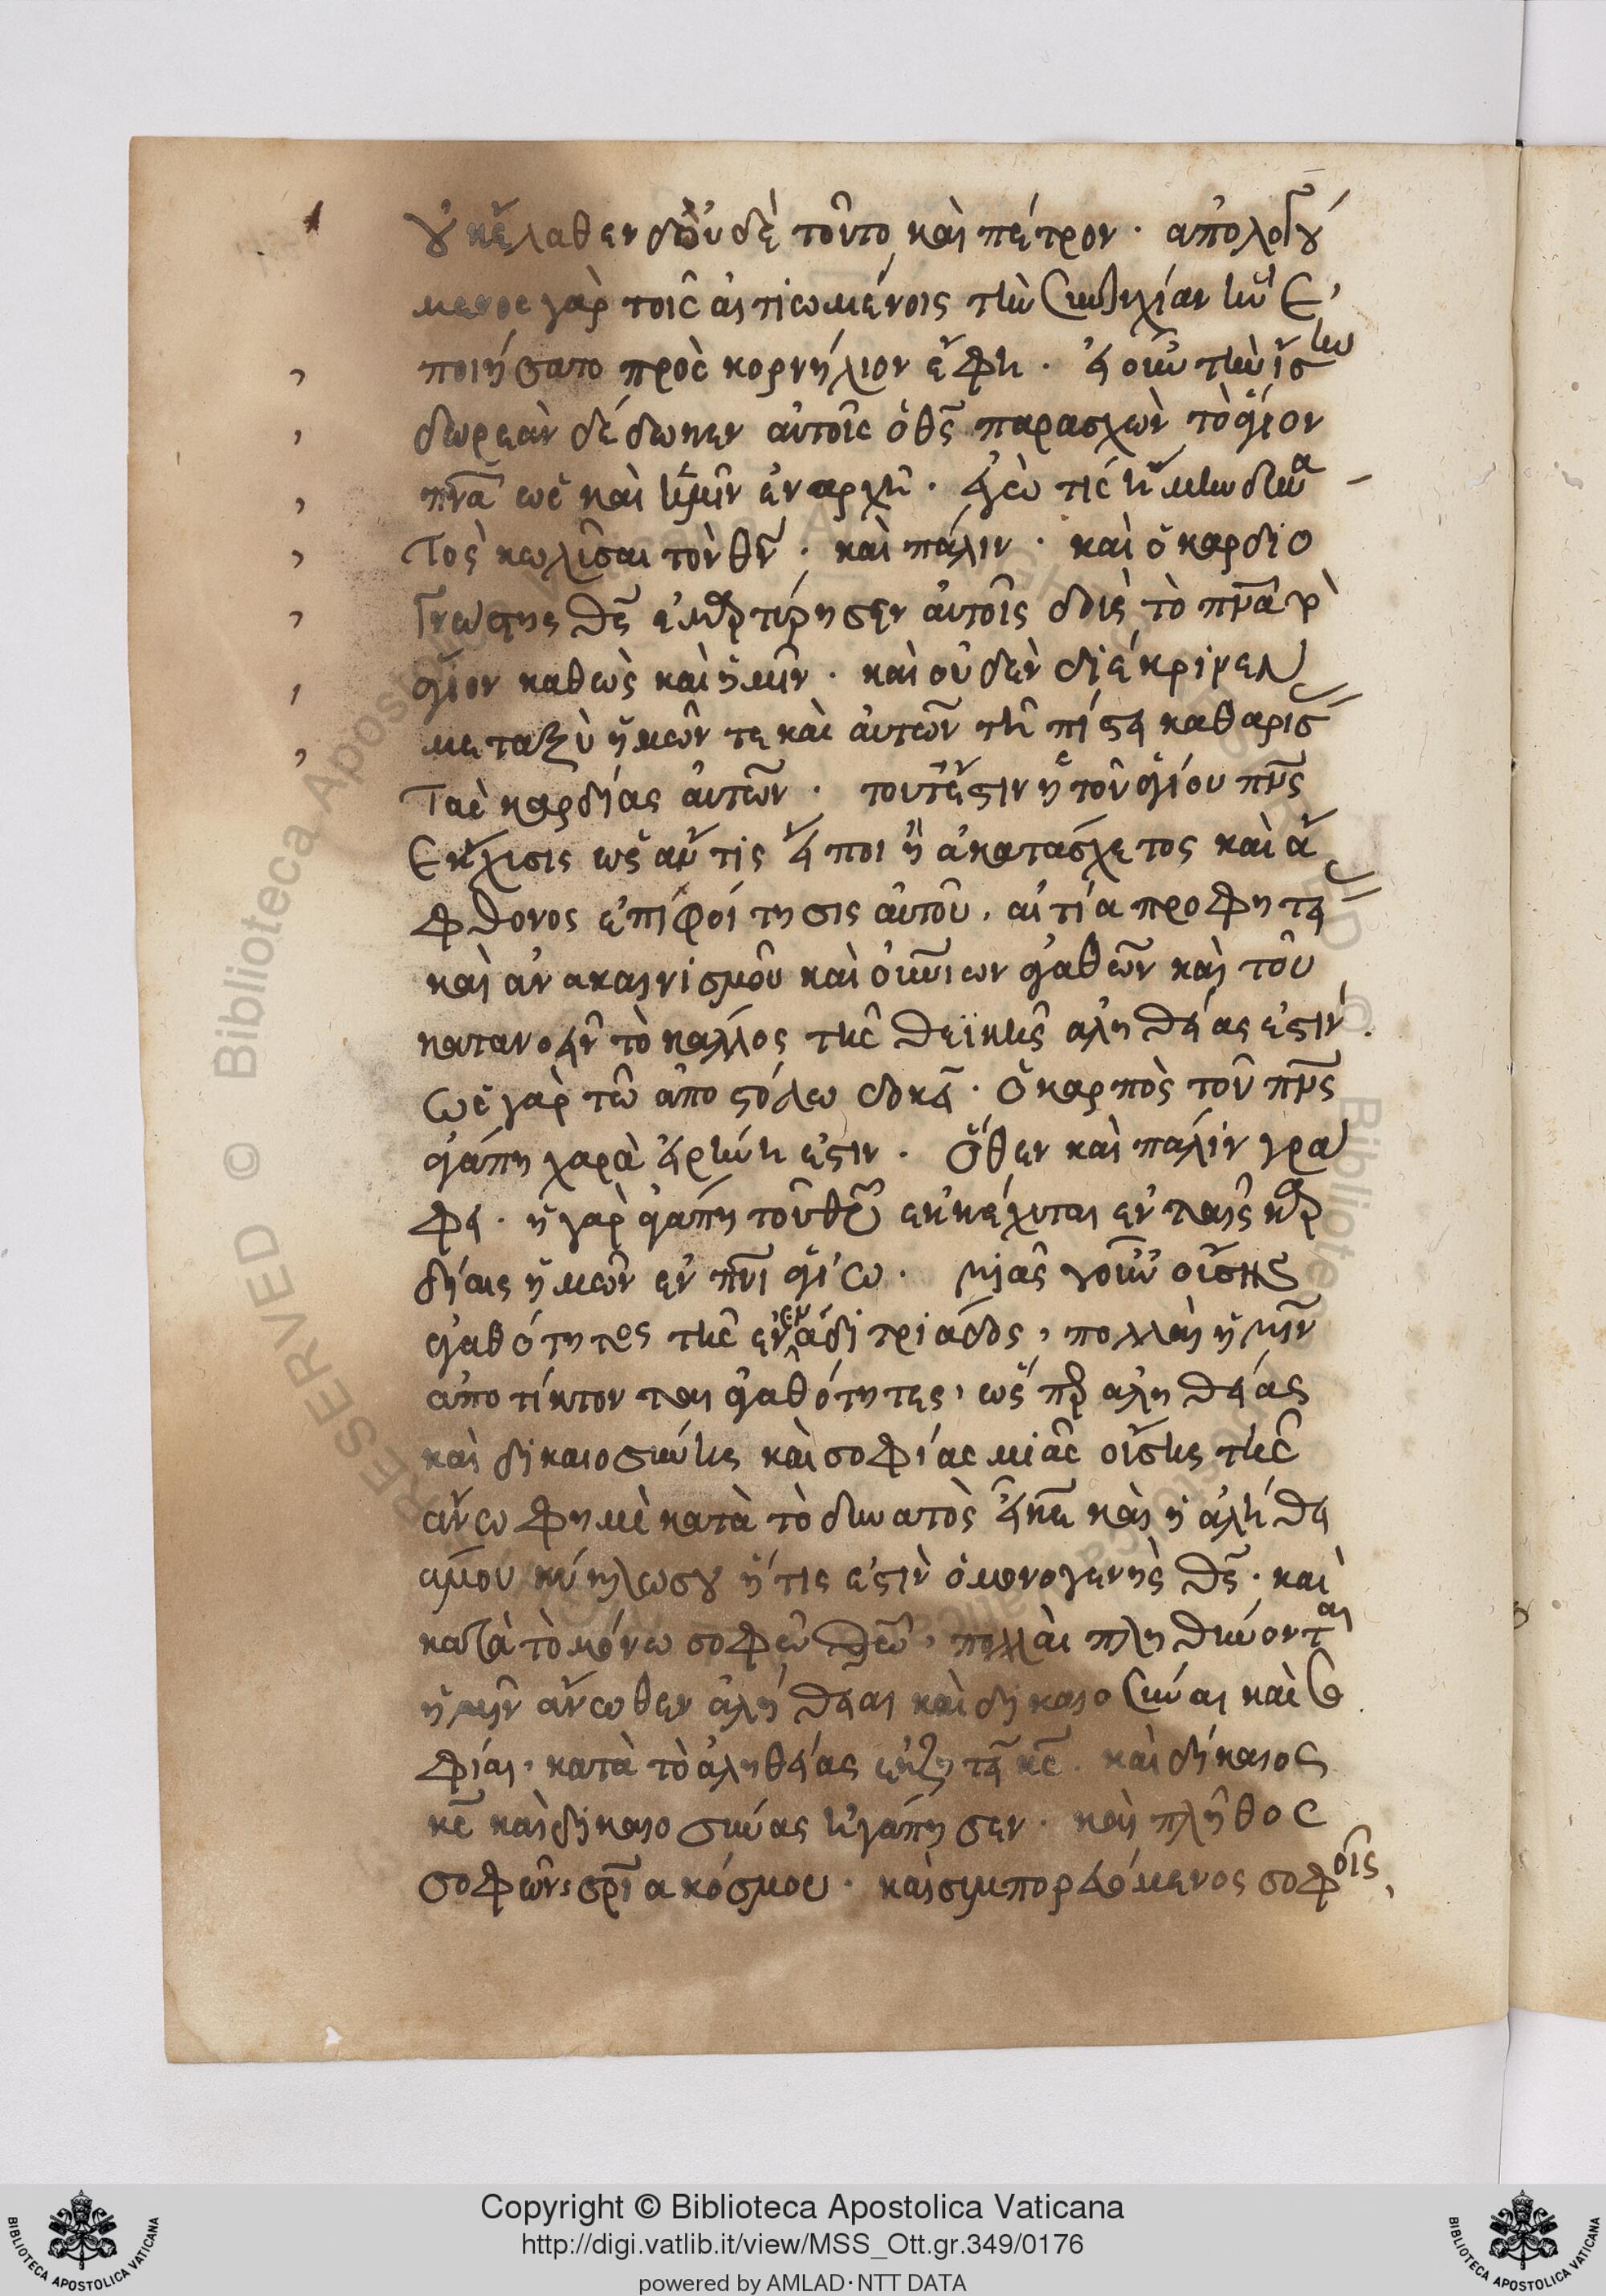 οὐκ ἔλαθεν δὲ οὐδὲ τοῦτο καὶ πέτρον · ἀπολογού
μενος γὰρ τοῖς αἰτιωμένοις τὴν συντυχίαν ἣν ἐ
ποιήσατο πρὸς κορνήλιον ἔφη · εἰ οὖν τὴν ἴσην
δωρεὰν δέδωκεν αὐτοῖς ὁ θς παρασχὼν τὸ ἅγιον
πνα ὡς καὶ ἡμῖν ἐν ἀρχῆ · ἐγὼ τίς ἤμην δυνα
τος κωλῦσαι τὸν θν · καὶ πάλιν · καὶ ὁ καρδιο
γνώστης θς ἐμαρτύρησεν αὐτοῖς δοὺς τὸ πνα τὸ
ἅγιον καθὼς καὶ ἡμῖν · καὶ οὐδὲν διέκρινεν
μεταξὺ ἡμῶν τε καὶ αὐτῶν τῆ πίστει καθαρίσ
τὰς καρδίας αὐτῶν · τουτέστιν ἡ τοῦ ἁγίου πνς
ἔκχυσις ὡς ἄν τις εἴποι ἢ ἀκατάσχετος καὶ ἄ
φθονος ἐπιφοίτησις αὐτοῦ, αἰτία προφητεί
καὶ ἀνακαινισμοῦ καὶ αἰωνίων ἀγαθῶν καὶ τοῦ
κατανοεῖν τὸ κάλλος τῆς θεϊκῆς ἀληθείας ἐστίν ·
ὡς γὰρ τῶ ἀποστόλω δοκεῖ · ὁ καρπὸς τοῦ πνς
ἀγάπη χαρὰ εἰρήνη ἐστιν · ὅθεν καὶ πάλιν γρα
φει · ἡ γὰρ ἀγάπη τοῦ θυ ἐκκέχυται ἐν ταῖς καρ
δίαις ἡμῶν ἐν πνι ἁγίω · μιᾶς γοῦν οὔσης
ἀγαθότητος τῆς ἐν ἑνάδι τριάδος, πολλαὶ ἡμῖν
ἀποτίκτονται ἀγαθότητες, ὥσπερ ἀληθείας
καὶ δικαιοσύνης καὶ σοφίας μιᾶς οὔσης τῆς
ἄνω φημὲ κατὰ τὸ δυνατὸς εἶ κε καὶ ἡ ἀλήθει
α σου κύκλω σου ἥτις ἐστὶν ὁ μονογενὴς θς · καὶ
κατὰ τὸ μόνω σοφῶ θεῶ, πολλαὶ πληθύνονται
ἡμῖν ἄνωθεν ἀλήθειαι καὶ δικαιοσύναι καὶ σο
φίαι, κατὰ τὸ ἀληθείας ἐκζητεῖ κς · καὶ δίκαιος
κς καὶ δικαιοσύνας ἠγάπησεν · καὶ πλῆθος
σοφῶν σρία κόσμου · καὶ συμπορευόμενος σοφοῖς,